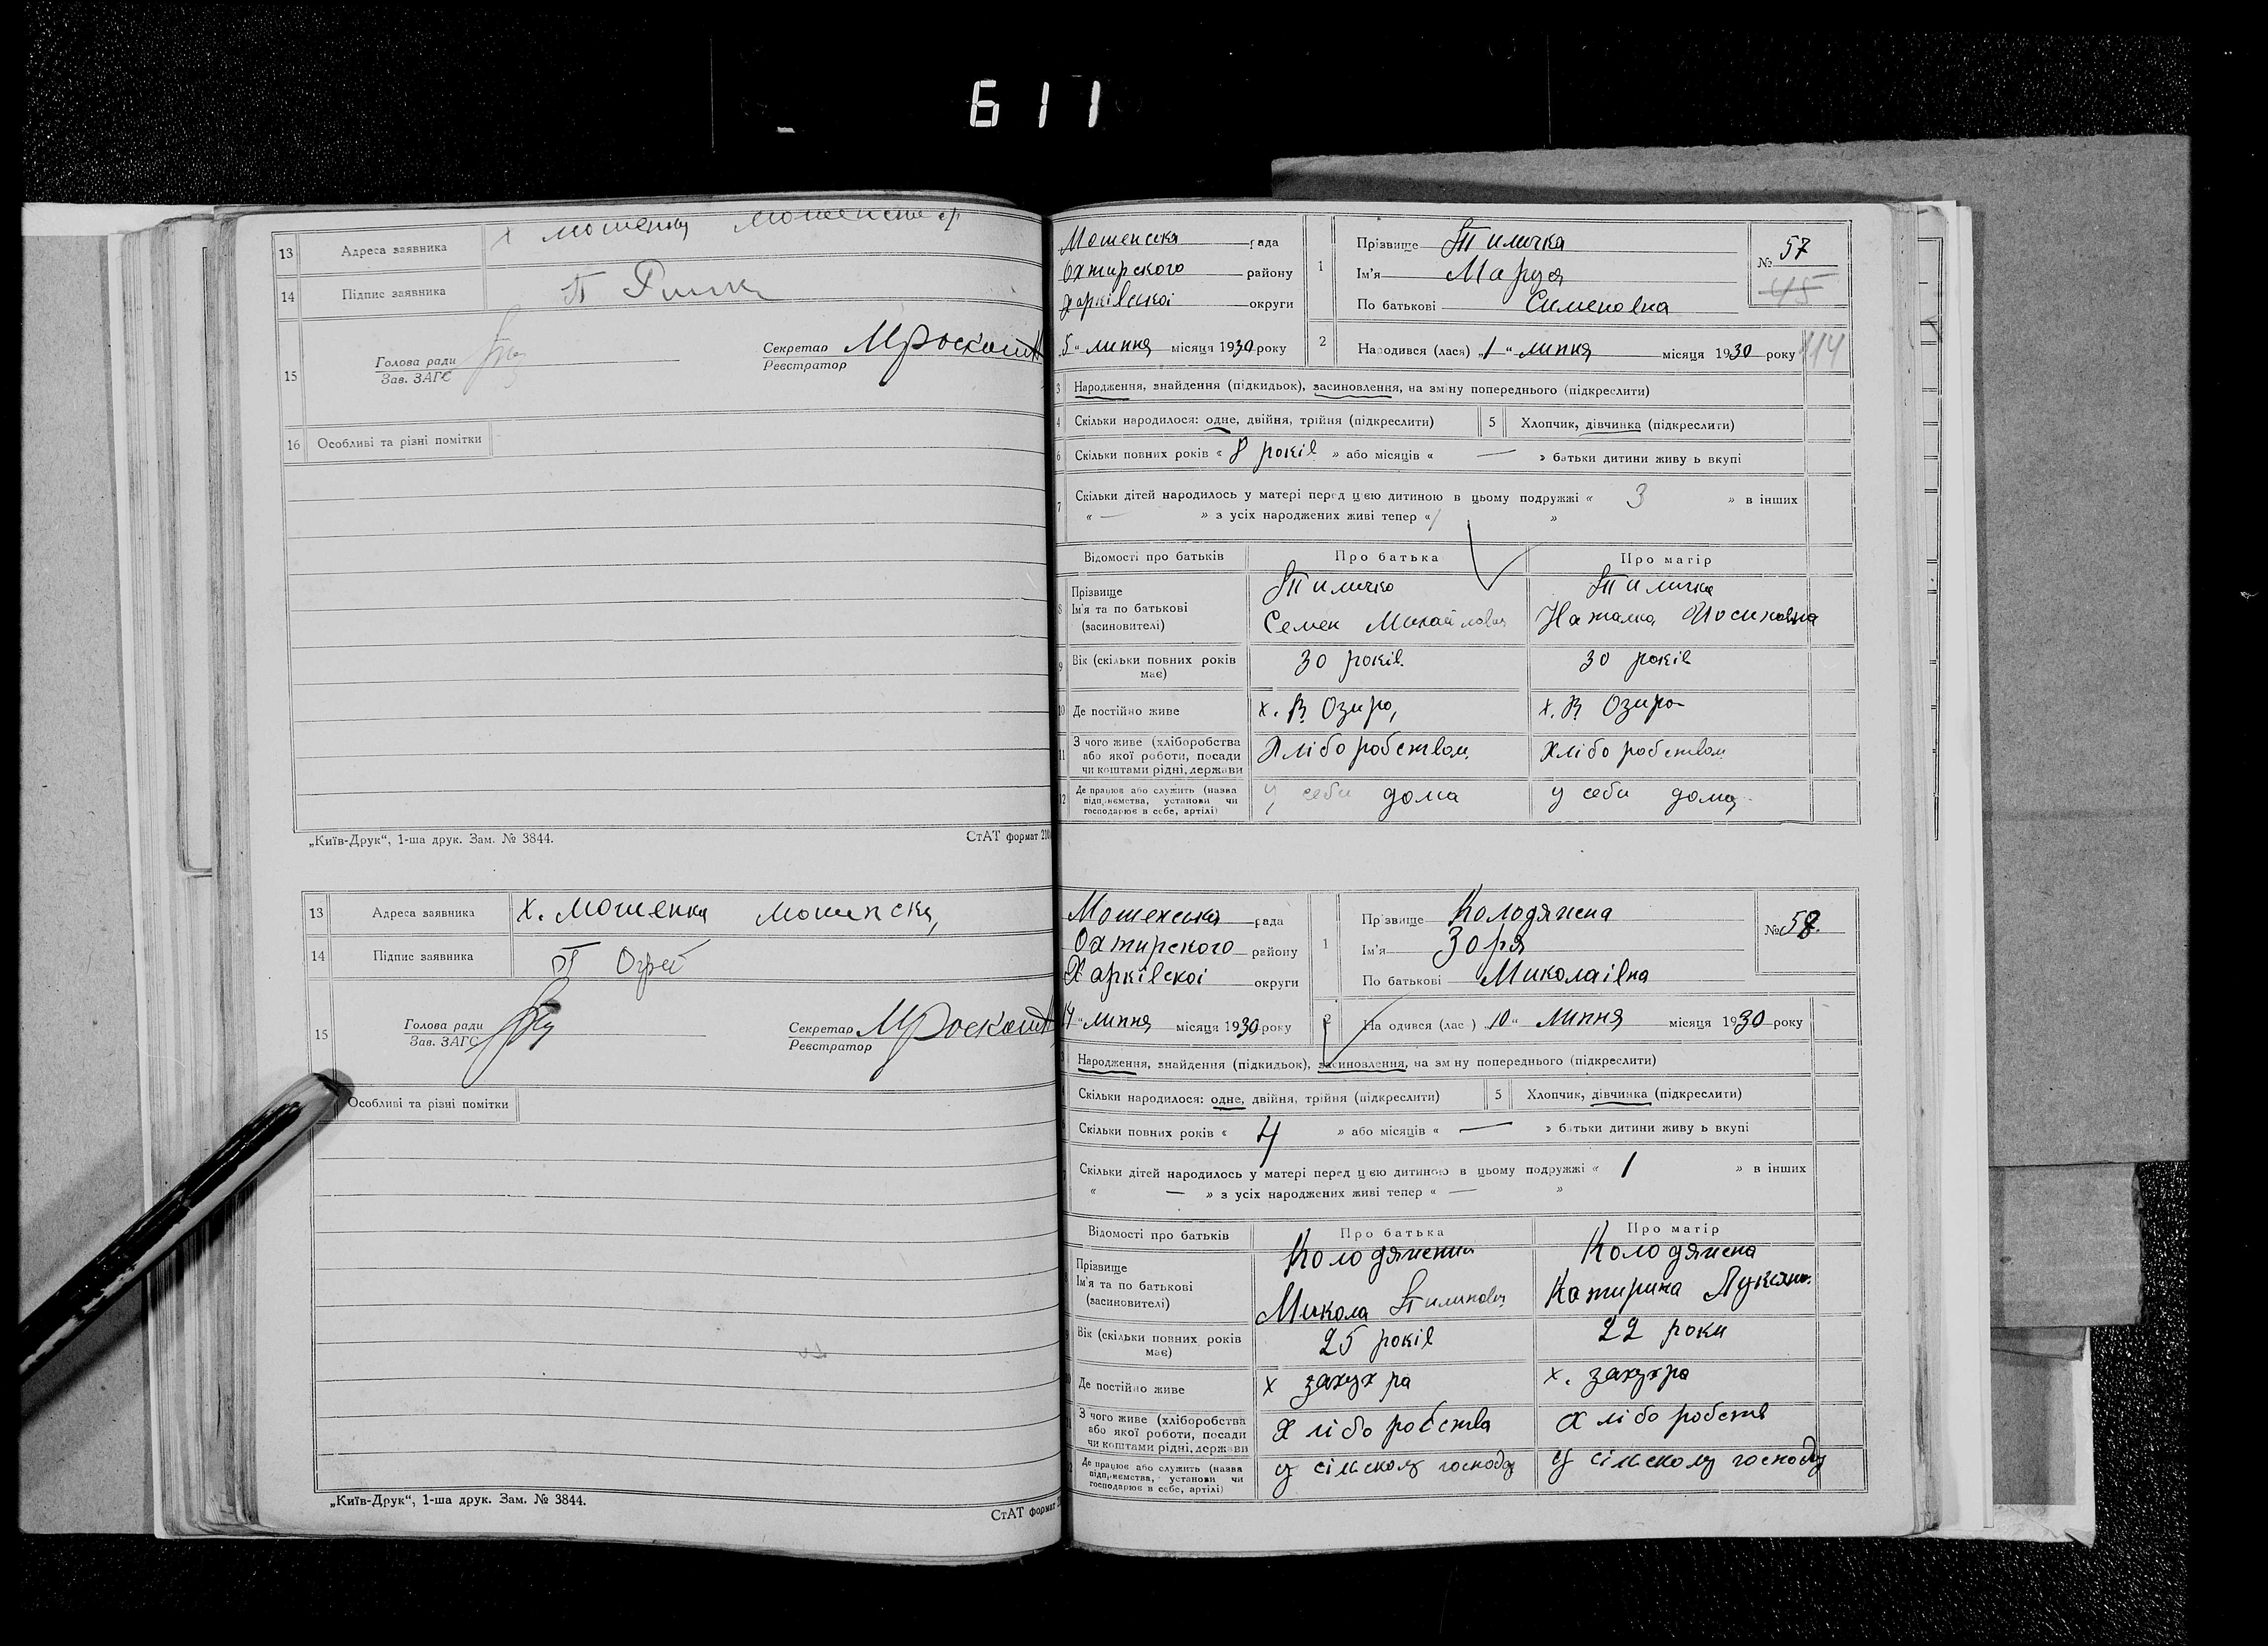 611
13 Адреса заявника х мошенку
14 Підпис заявника П
15 Голова ради
Зав. ЗАГС
Секретар Мроскошт
Реєстратор
16 Особливі та різні помітки
„Київ-Друк“, 1-ша друк. Зам. № 3844.
СтАТ формат
13 Адреса заявника х. мошенка
14 Підпис заявника П Огрей
15 Голова ради
Зав. ЗАГС
Секретар Мроскошт
Реєстратор
Особливі та різні помітки
„Київ-Друк“, 1-ша друк. Зам. № 3844.
СтАТ формат
Мошенська рада
Охтирского району
Харківскоі округи
5“ липня місяця 1930 року
1 Прізвище Тиличка
Ім'я Маруся
По батькові Сименовна
№ 57
45
2 Народився (лася) „1“ липня місяця 1930 року
114
3 Народження, знайдення (підкидьок), засиновлення, на зміну попереднього (підкреслити)
4 Скільки народилося: одне, двійня, трійня (підкреслити)
5 Хлопчик, дівчинка (підкреслити)
6 Скільки повних років « 8 років » або місяців « — » батьки дитини живу ь вкупі
7 Скільки дітей народилось у матері перед цією дитиною в цьому подружжі « 3 » в інших
« — » з усіх народжених живі тепер « »
Відомості про батьків Про батька Про матір
8 Прізвище Тиличко Тиличка
Ім'я та по батькові
(засновителі) Семен Михайлович Наталка Йосиповна
9 Вік (скільки повних років має) 30 років. 30 років
10 Де постійно живе х. В Озиро, х. В Озиро
11 З чого живе (хліборобства або якої роботи, посади чи коштами рідні, держави Хліборобством. Хліборобством
12 Де працює або служить (назва підприємства, установи чи господарює в себе, артілі) У себи дома У себи дома
Мошенська рада
Охтирского району
Харківскоі округи
14“ липня місяця 1930 року
1 Прізвище Колодяжна
Ім'я Зоря
По батькові Миколаівна
№ 58.
2 На одився (лас ) „10“ липня місяця 1930 року
Народження, знайдення (підкидьок), засиновлення, на зм ну попереднього (підкреслити)
Скільки народилося: одне, двійня, трійня (підкреслити)
5 Хлопчик, дівчинка (підкреслити)
Скільки повних років « 4 » або місяців « — » батьки дитини живу ь вкупі
Скільки дітей народилось у матері перед цією дитиною в цьому подружжі « 1 » в інших
« — » з усіх народжених живі тепер « — »
Відомості про батьків Про батька Про матір
Прізвище Колодяжний Колодяжна
Ім'я та по батькові
(засновителі) Микола Пилипович Катирина Лукіян.
Вік (скільки повних років має) 25 років 22 роки
Де постійно живе х захухра х. захухра
З чого живе (хліборобства або якої роботи, посади чи коштами рідні, держави Хліборобства Хліборобств
Де працює або служить (назва підприємства, установи чи господарює в себе, артілі) У сільскому господу У сільскому господу